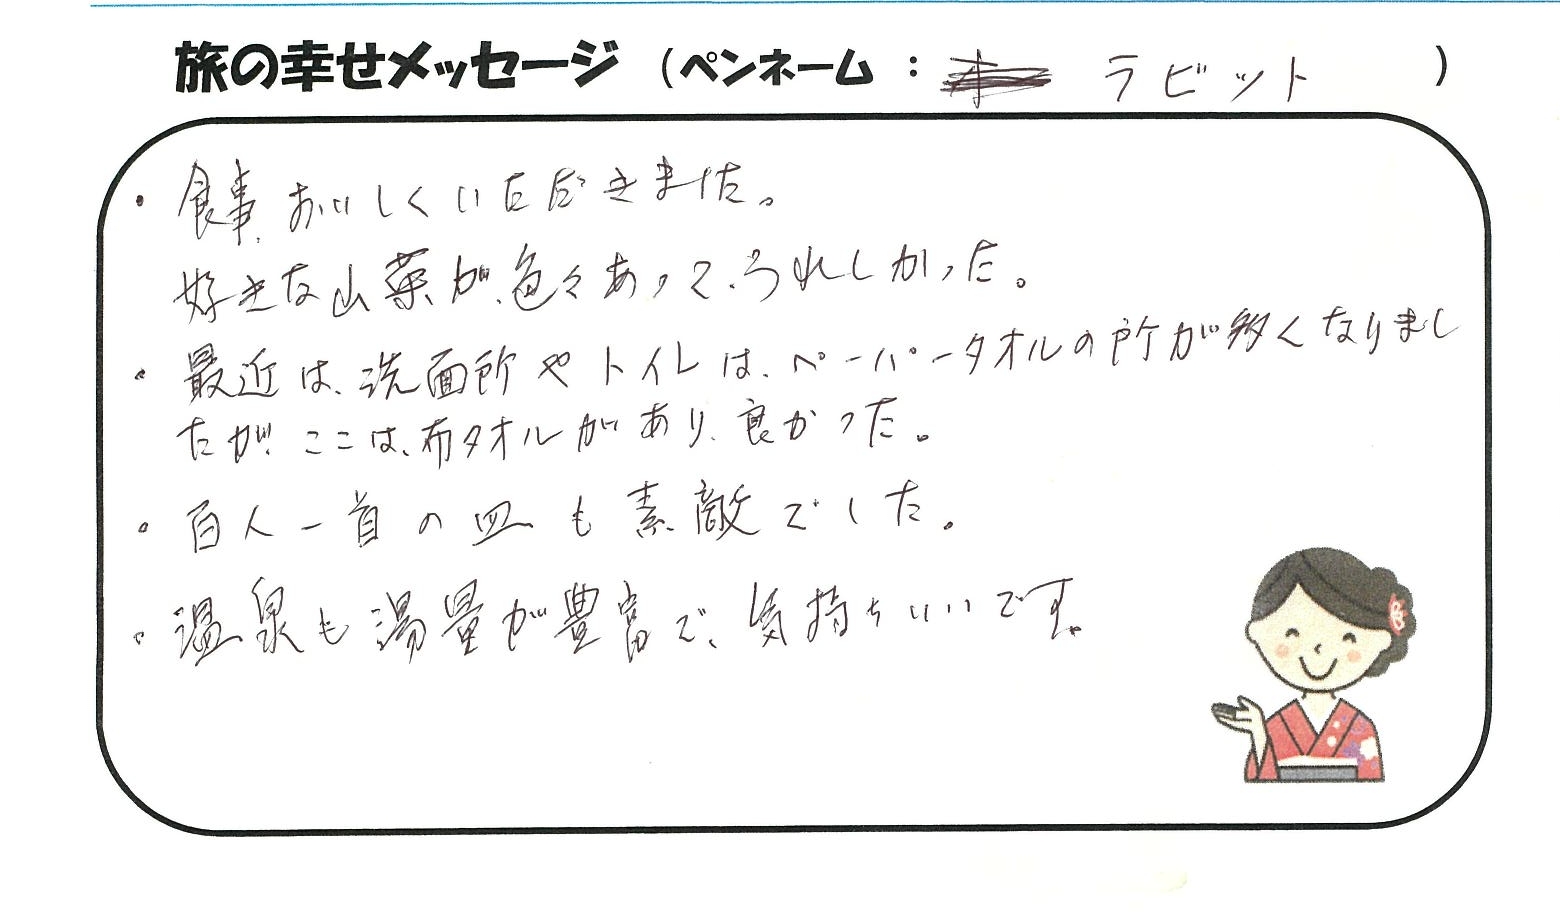 旅の幸せメッセージ （ペンネーム ： ラビット ）
・食事、おいしくいただきました。
好きな山菜が、色々あって、うれしかった。
・最近は、洗面所やトイレは、ペーパータオルの所が多くなりまし
たが、ここは、布タオルがあり、良かった。
・百人一首の皿も素敵でした。
・温泉も湯量が豊富で、気持ちいいです。